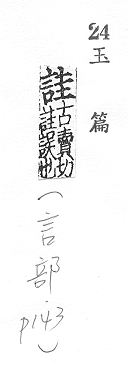 24
玉篇
詿古賣切詿誤也
(言部·p143)